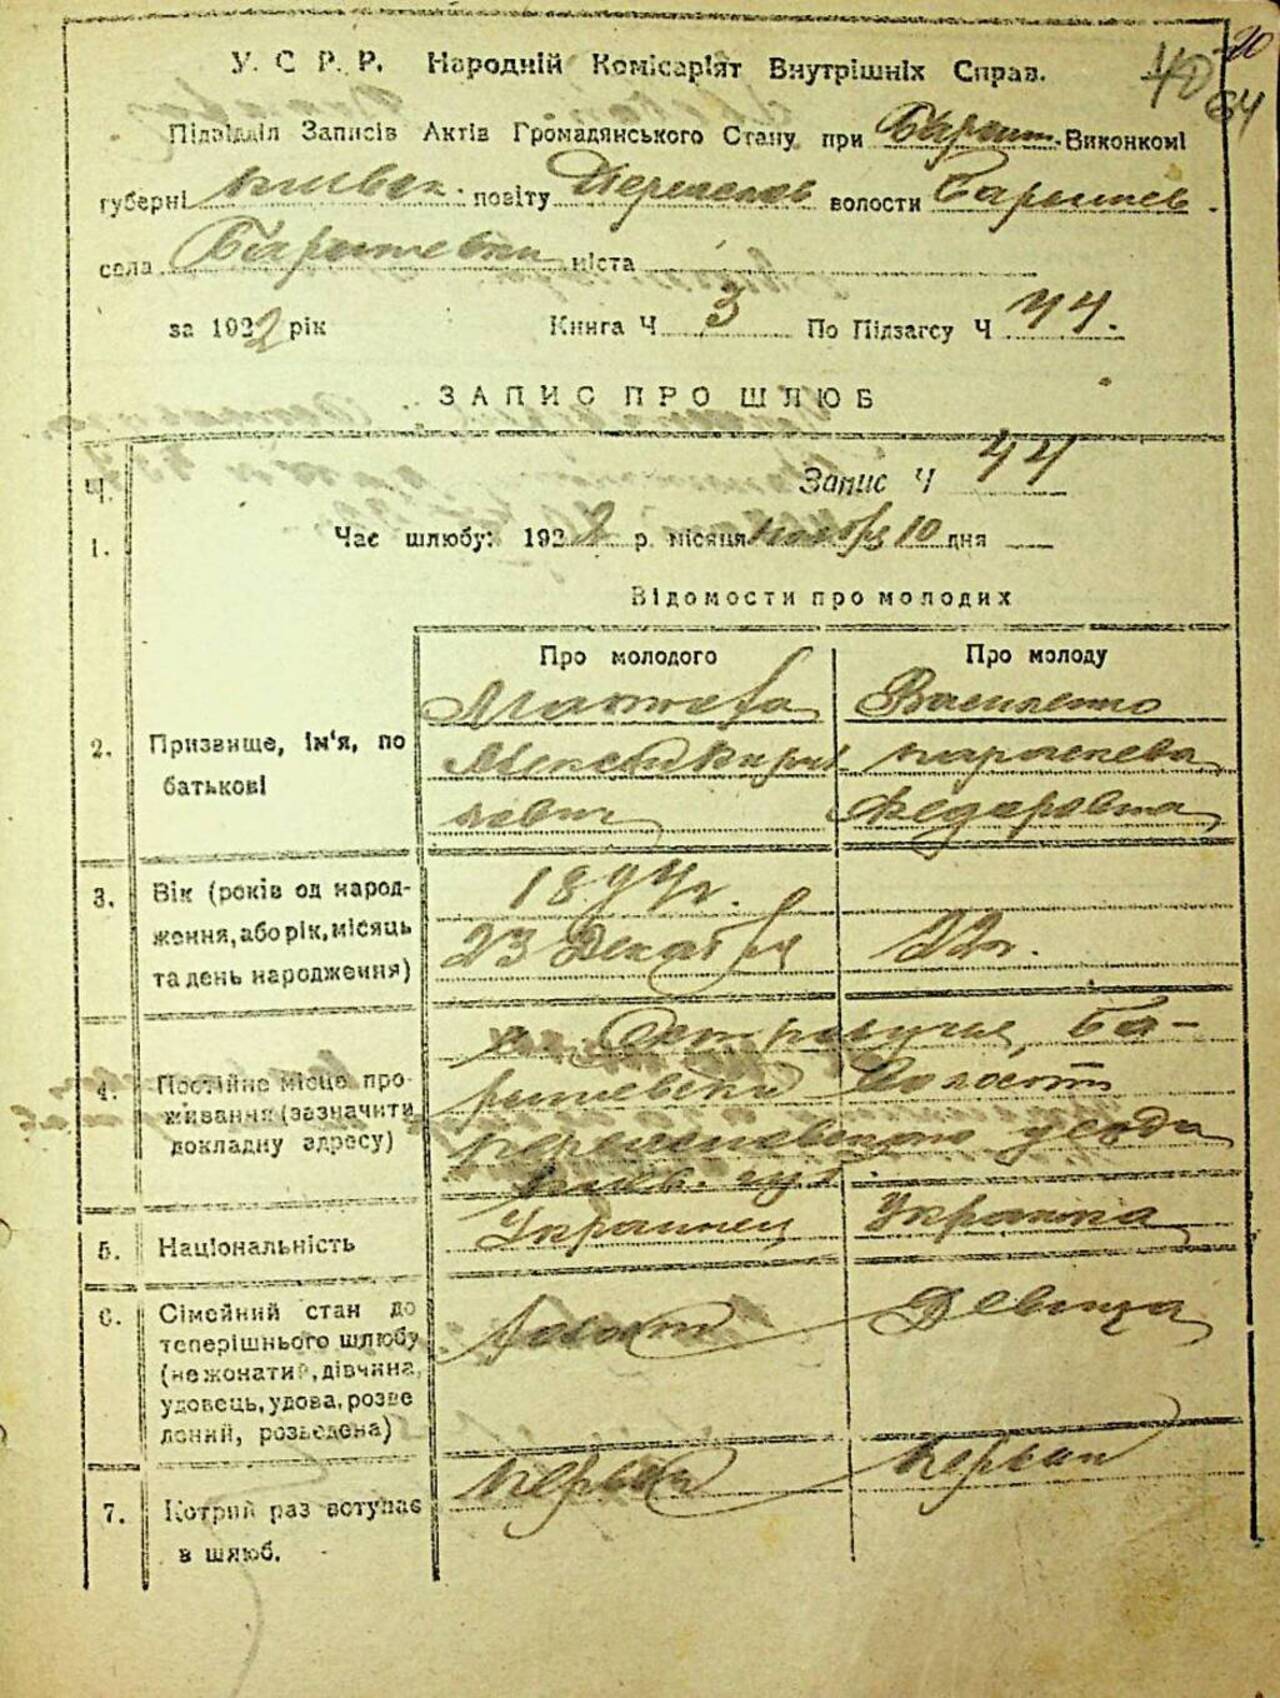 20
40
64
У. С Р. Р. Народній Комісаріят Внутрішніх Справ.
Підвідділ Записів Актів Громадянського Стану при Барыш. Виконкомі
губерні Киевск. повіту Переяслов волости Барышев.
села Барышевки міста
за 1922 рік Книга Ч 3 По Підзагсу Ч 44.
ЗАПИС ПРО ШЛЮБ
Ч. Запис Ч 44
1. Час шлюбу: 1922 р. місяця ноября 10 дня
Відомости про молодих
Про молодого Про молоду
Василенко
2. Призвище, ім'я, по
батькові
Параскева
Федоровна
3. Вік (років од народ-
ження, або рік, місяць
та день народження)
1894 г.
23 Декабря 22 г.
4. Постійне місце про-
живання (зазначити
докладну адресу)
Ба-
рышевской Волости
Переяславского уезда
Киев. губ.
5. Національність Украинец Украинка
6. Сімейний стан до
теперішнього шлюбу
(не жонатий, дівчина,
удовець, удова, розве
дений, розведена)
Холост Девица
7. Котрий раз вступає
в шлюб.
Первый Первый